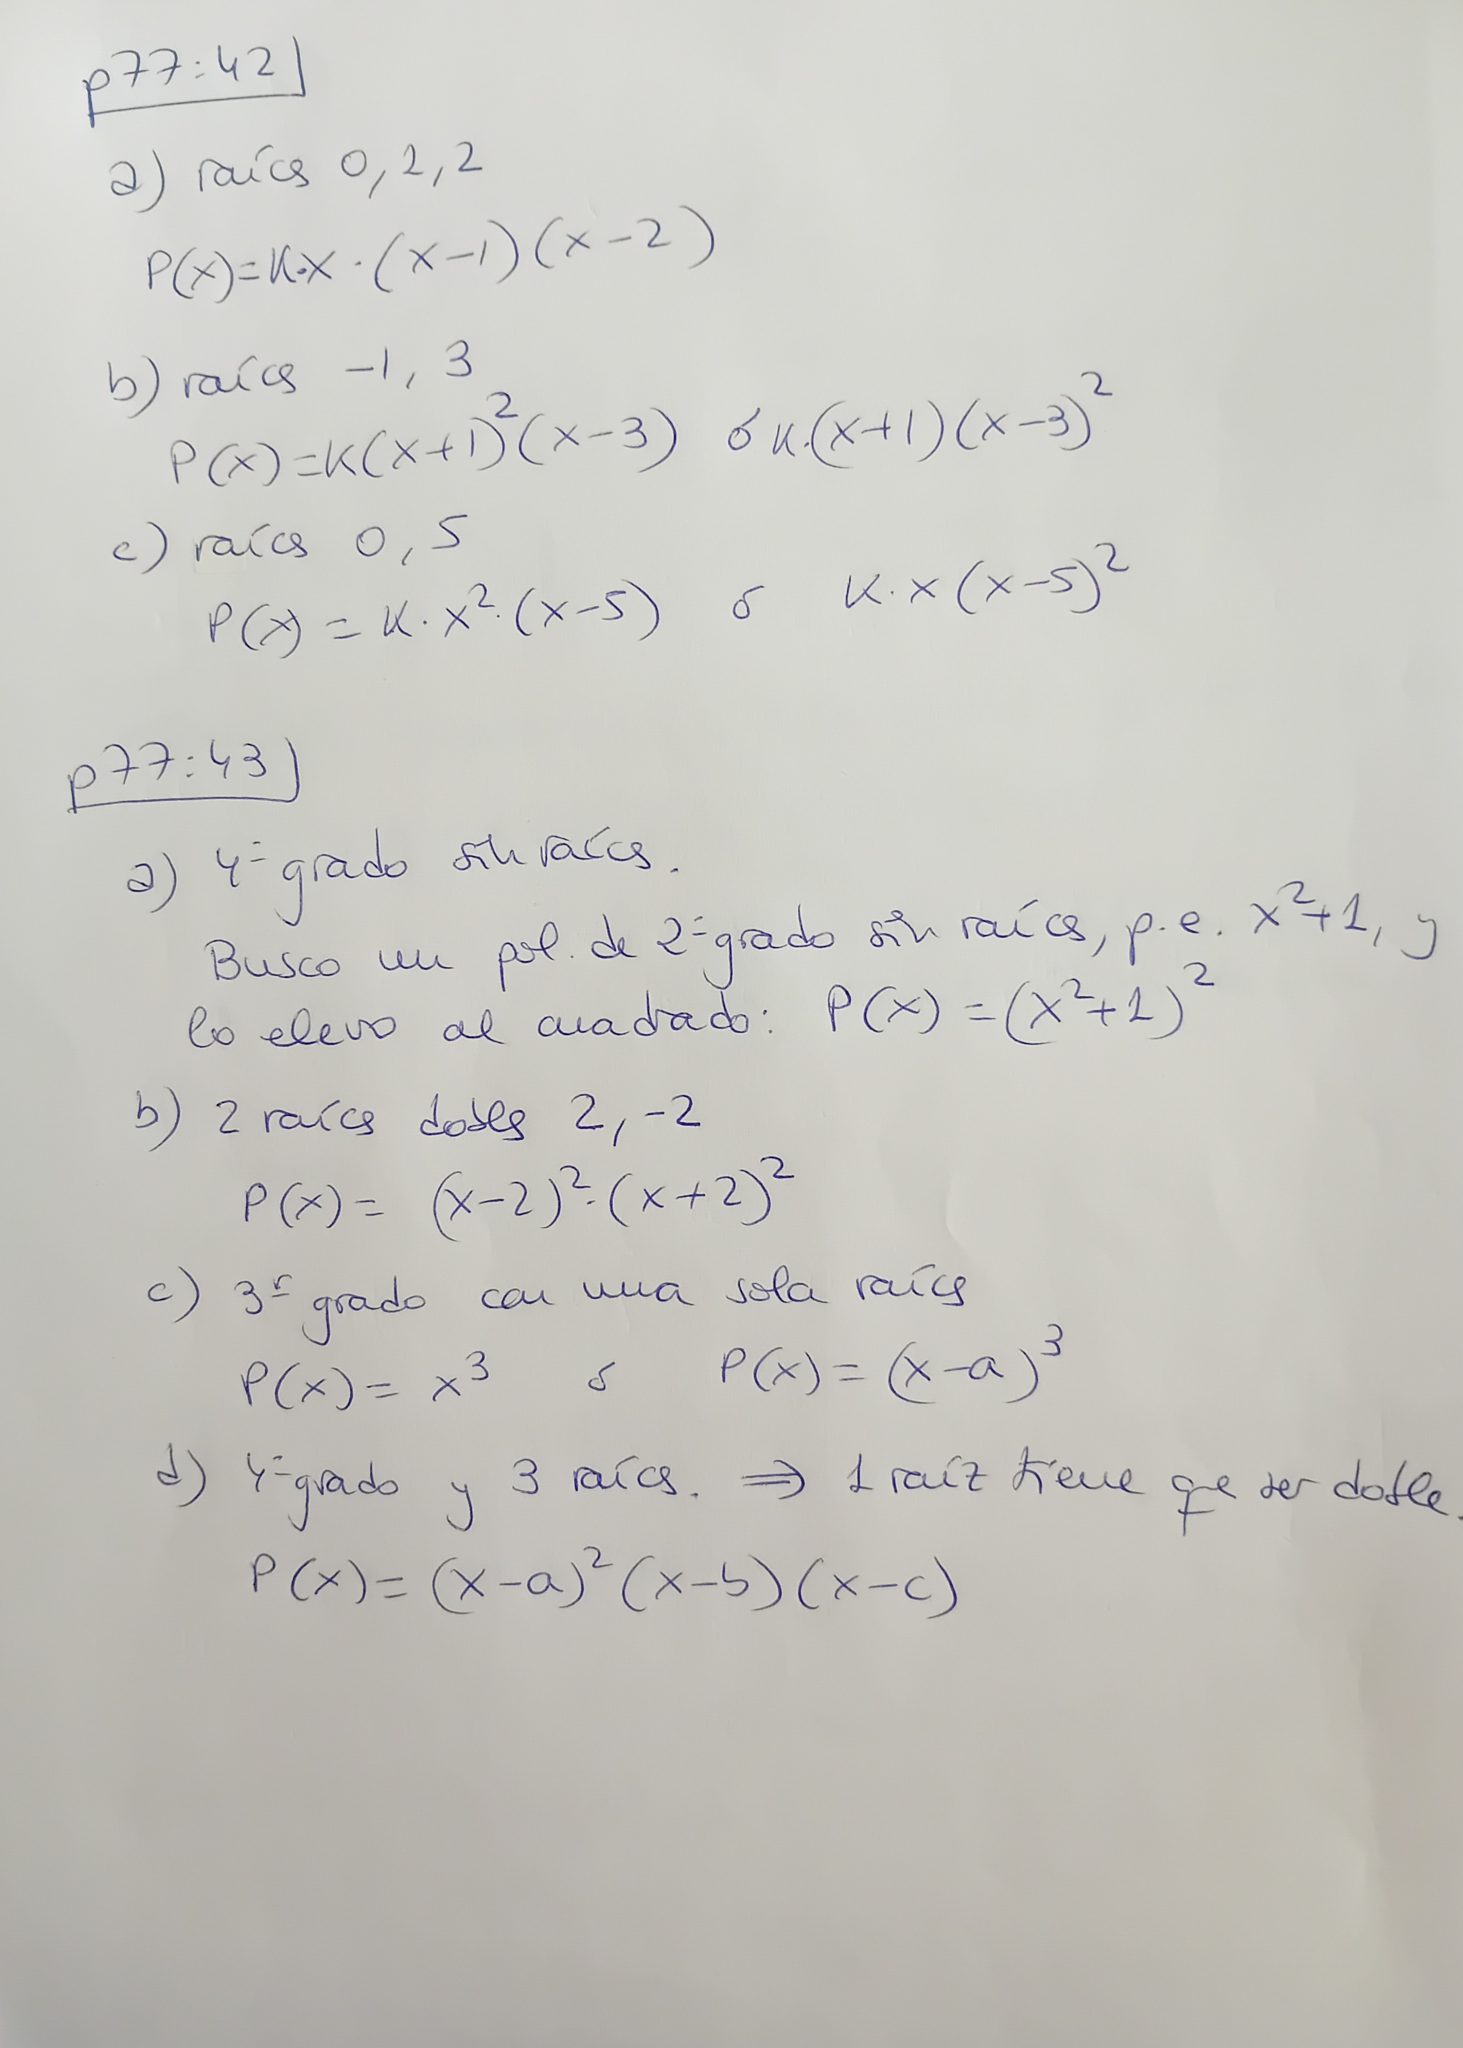 p77:42
a) raíces 0, 1, 2
P(x)=K·x·(x-1)(x-2)
b) raíces -1, 3
P(x)=K(x+1)²(x-3) ó K·(x+1)(x-3)²
c) raíces 0, 5
P(x) = K·x²·(x-5) ó K·x(x-5)²
p77:43
a) 4º grado sin raíces.
Busco un pol. de 2º grado sin raíces, p.e. x²+1, y
lo elevo al cuadrado: P(x) = (x²+1)²
b) 2 raíces dobles 2, -2
P(x) = (x-2)²·(x+2)²
c) 3º grado con una sola raíces
P(x) = x³ ó P(x) = (x-a)³
d) 4º grado y 3 raíces. ⇒ 1 raíz tiene que ser doble.
P(x) = (x-a)²(x-b)(x-c)